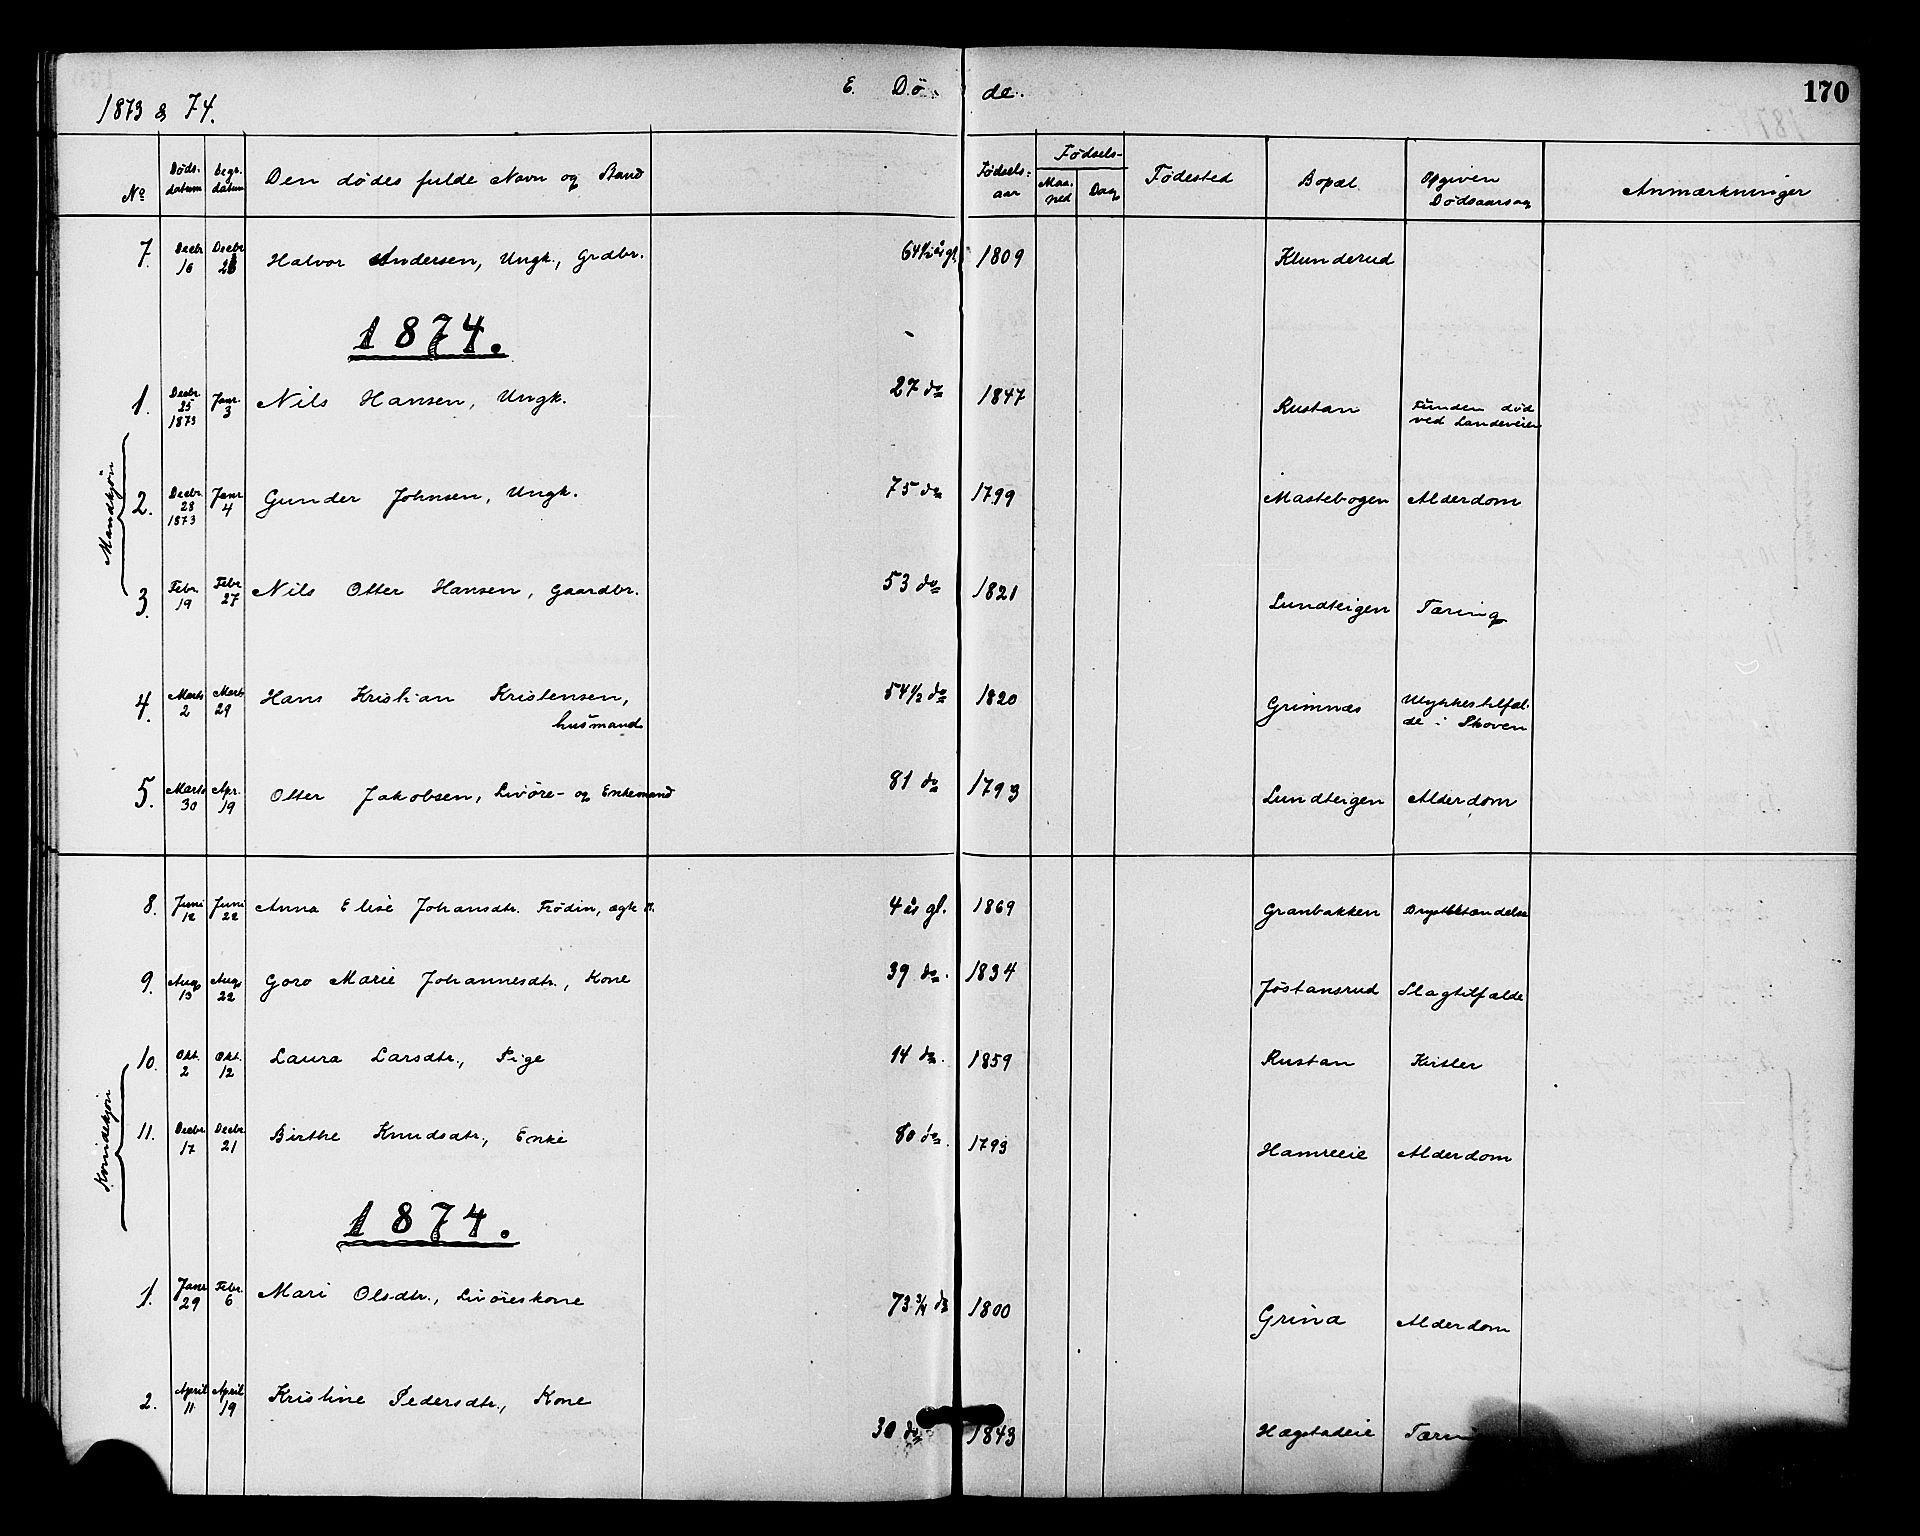 1873 & 74.
E. Døde.
170
No
Døds-datum
begr. datum
Den dødes fulde Navn og Stand
Fødsels-aar
Fødsels-
Maaned
Dag
Fødested
Bopæl
Opgiven Dødsaarsag
Anmærkninger
7. Decbr 16 Halvor Andersen, Ungk., Grdbr. 64½ års gl. 1809 Klunderud
1874.
Mandkjøn
1. Decbr. 25 1873 Janr. 3 Nils Hansen, Ungk. 27 do 1847 Rustan Funden død
ved Landeveien
2. Decbr. 28 1873 Janr 4 Gunder Johnsen, Ungk. 75 do 1799 Mastebogen Alderdom
3. Febr. 19 Febr 27 Nils Otter Hansen, Gaardbr. 53 do 1821 Lundteigen Tæring
4. Marts 2 Marts 29 Hans Kristian Kristensen, 54½ do 1820 Grimnæs Ulykkestilfæl-
husmand de i Skoven
5. Marts 30 Apr. 19 Otter Jakobsen, Livøre- og Enkemand 81 do 1793 Lundteigen Alderdom
Kvindekjøn
8. Juni 12 Juni 22 Anna Elise Johansdtr. Frødin, ægte 4 år gl. 1869 Granbakken Brystbetændelse
9. Aug 13 Aug 22 Goro Marie Johannesdtr., Kone 39 do. 1834 Jøstansrud Slagtilfælde
10. Okt. 2 Okt. 12 Laura Larsdtr., Pige 14 do. 1859 Rustan Kirtler
11. Decbr 17 Decbr 21 Birthe Knudsdtr., Enke 80 do. 1793 Hamreeie Alderdom
1874.
1. Janr 29 Febr. 6 Mari Olsdtr., Livøreskone 73¾ do 1800 Grina Alderdom
2. April 11 April 19 Kristine Pedersdtr., Kone 30 do 1843 Hægstadeie